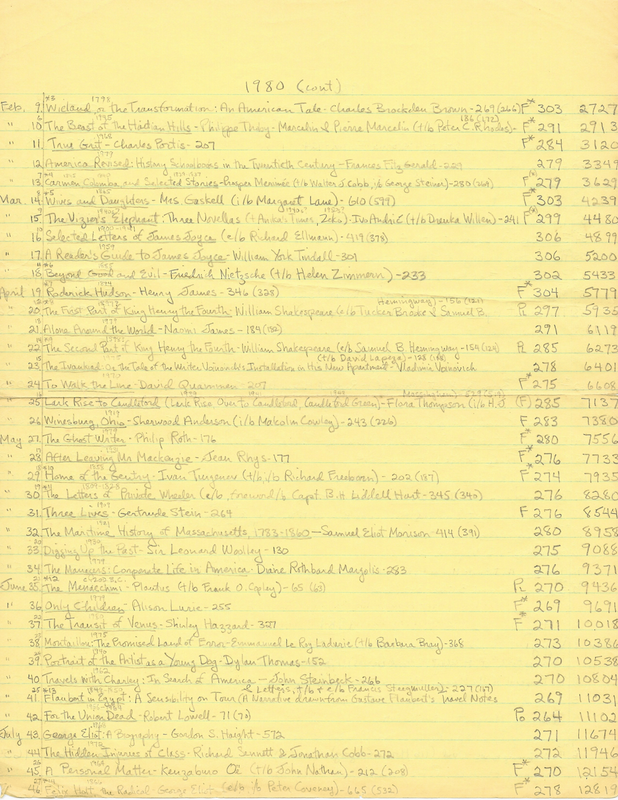 1980 (cont)
Feb. 9. Wieland, or the Transformation: An American Tale - Charles Brockden Brown - 269 (266) F* 303 2727
" 10. The Beast of the Haitian Hills - Philippe Thoby-Marcelin & Pierre Marcelin (t/b Peter C. Rhodes) - 186 (172) F* 291 2913
" 11. True Grit - Charles Portis - 207 F* 284 3120
" 12. America Revised: History Schoolbooks in the Twentieth Century - Frances FitzGerald - 229 279 3349
" 13. Carmen, Colomba and Selected Stories - Prosper Merimée (t/b Walter J. Cobb, i/b George Steiner) - 280 279 3629
Mar. 14. Wives and Daughters - Mrs. Gaskell (i/b Margaret Lane) - 610 (599) F* 303 4239
" 15. The Vizier's Elephant: Three Novellas (+ Anika's Times, Zeko) - Ivo Andrić (t/b Drenka Willen) - 241 299 4480
" 16. Selected Letters of James Joyce (e/b Richard Ellmann) - 419 306 4899
" 17. A Reader's Guide to James Joyce - William York Tindall - 301 306 5200
" 18. Beyond Good and Evil - Friedrich Nietzsche (t/b Helen Zimmern) - 233 302 5433
April 19. Roderick Hudson - Henry James - 346 (328) F* 304 5779
" 20. The First Part of King Henry the Fourth - William Shakespeare (e/b Tucker Brooke & Samuel B. Hemingway) - 156 297 5935
" 21. Alone Around the World - Naomi James - 184 291 6119
" 22. The Second Part of King Henry the Fourth - William Shakespeare (e/b Samuel B. Hemingway) - 154 285 6273
" 23. The Ivankiad: Or the Tale of the Writer Voinovich's Installation in His New Apartment - Vladimir Voinovich (t/b David Lapeza) - 128 278 6401
" 24. To Walk the Line - David Quammen - 207 F* 275 6608
" 25. Lark Rise to Candleford (Lark Rise, Over to Candleford, Candleford Green) - Flora Thompson (i/b H.J. Massingham) (F) 285 7137
" 26. Winesburg, Ohio - Sherwood Anderson (i/b Malcolm Cowley) - 243 (226) F 283 7380
May 27. The Ghost Writer - Philip Roth - 176 F* 280 7556
" 28. After Leaving Mr Mackenzie - Jean Rhys - 177 F* 276 7733
" 29. Home of the Gentry - Ivan Turgenev (t/b, i/b Richard Freeborn) - 202 (187) F* 274 7935
" 30. The Letters of Private Wheeler (e/b, foreword/b Capt. B.H. Liddell Hart - 345 (340) 276 8280
" 31. Three Lives - Gertrude Stein - 264 F 276 8544
" 32. The Maritime History of Massachusetts, 1783-1860 - Samuel Eliot Morison - 414 (391) 280 8958
" 33. Digging Up the Past - Sir Leonard Woolley - 130 275 9088
" 34. The Managers: Corporate Life in America - Diane Rothbard Margolis - 283 276 9371
June 35. The Menaechmi - Plautus (t/b Frank O. Copley) - 65 270 9436
" 36. Only Children - Alison Lurie - 255 F* 269 9691
" 37. The Transit of Venus - Shirley Hazzard - 327 F* 271 10018
" 38. Montaillou: The Promised Land of Error - Emmanuel Le Roy Ladurie (t/b Barbara Bray) - 368 273 10386
" 39. Portrait of the Artist as a Young Dog - Dylan Thomas - 152 270 10538
" 40. Travels With Charley: In Search of America - John Steinbeck - 266 270 10804
" 41. Flaubert in Egypt: A Sensibility on Tour (A Narrative drawn from Gustave Flaubert's Travel Notes & Letters, t/b & e/b Francis Steegmuller) - 227 269 11031
" 42. For the Union Dead - Robert Lowell - 71 (70) Po 264 11102
July 43. George Eliot: A Biography - Gordon S. Haight - 572 271 11674
" 44. The Hidden Injuries of Class - Richard Sennett & Jonathan Cobb - 272 272 11946
" 45. A Personal Matter - Kenzaburo Oë (t/b John Nathan) - 212 (208) F* 270 12154
" 46. Felix Holt, the Radical - George Eliot (e/b, i/b Peter Coveney) - 665 (532) F* 278 12819